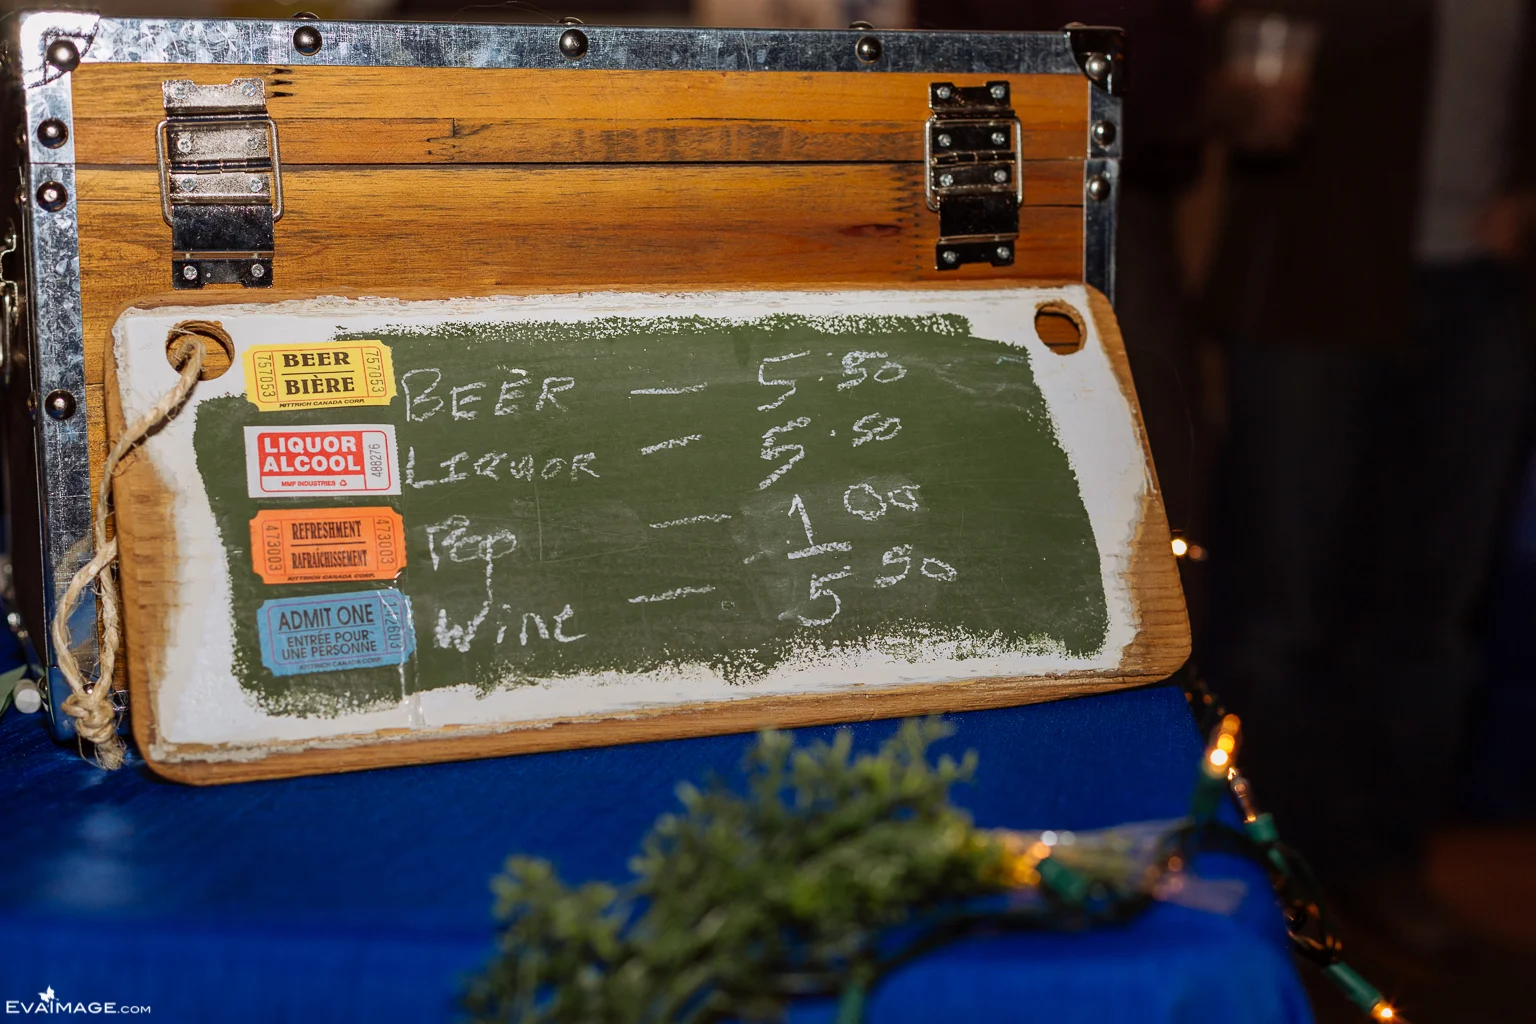 BEER
BIÈRE
757053
757053
KITTRICH CANADA CORP.
BEER — 5.50
LIQUOR
ALCOOL
488276
MMP INDUSTRIES
LIQUOR — 5.50
REFRESHMENT
RAFRAÎCHISSEMENT
473003
473003
KITTRICH CANADA CORP.
Pop — 1 00
ADMIT ONE
ENTRÉE POUR
UNE PERSONNE
142603
KITTRICH CANADA CORP.
Wine — 5 50
EVAIMAGE.COM